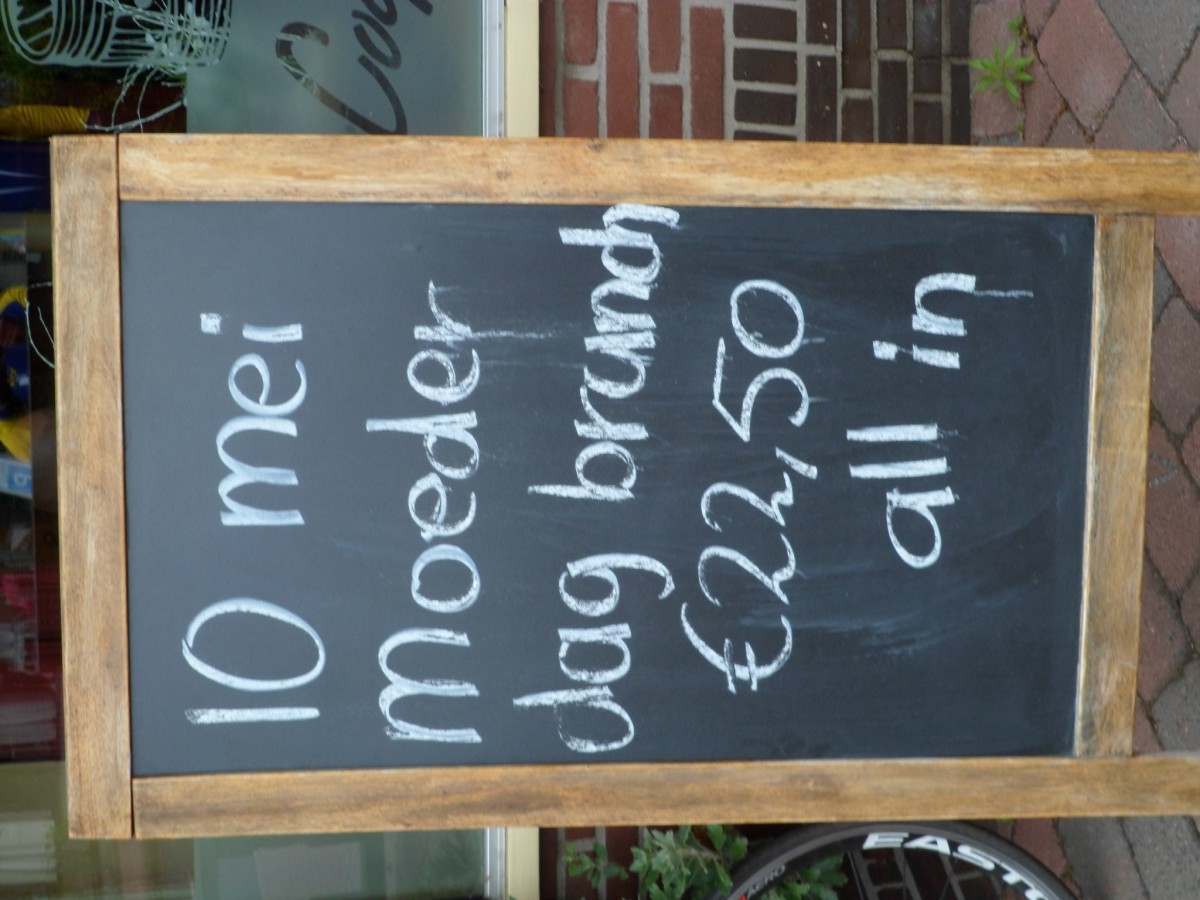 10 mei
moeder
dag brunch
€22,50
all in
AERO